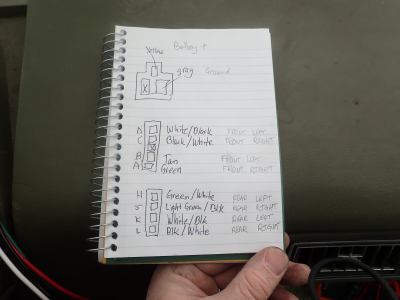 Yellow Battery +
gray Ground
X
D White/Black FRONT LEFT
C Black/White FRONT RIGHT
B Tan FRONT LEFT
A Green FRONT RIGHT
H Green/White REAR LEFT
J Light Green/Blk REAR RIGHT
K White/Blk REAR LEFT
L Blk/White REAR RIGHT